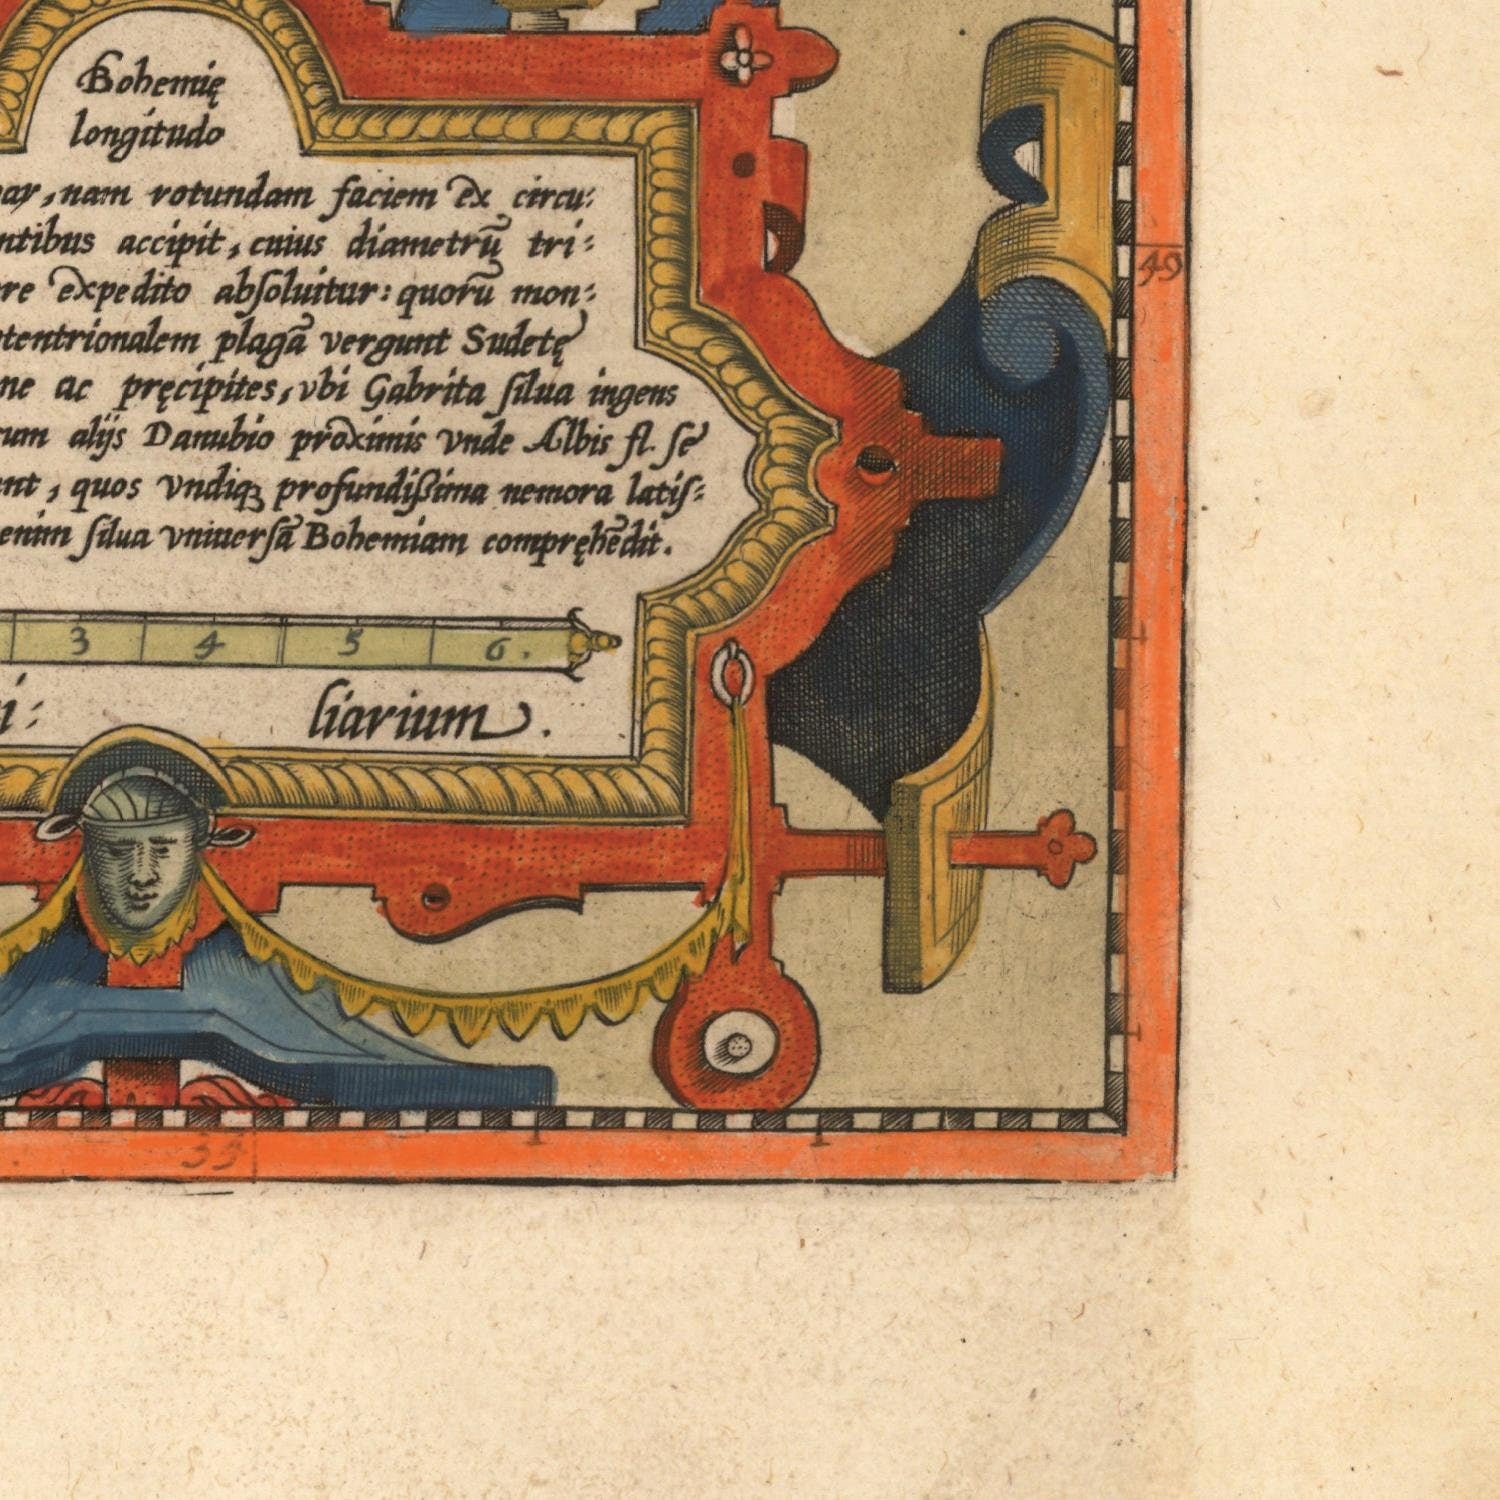 Bohemię
longitudo
par, nam rotundam faciem ex circu:
ntibus accipit, cuius diametrū tri:
re expedito absoluitur: quorū mon:
tentrionalem plagā vergunt Sudetę
ne ac pręcipites, vbi Gabrita silua ingens
cum alijs Danubio proximis vnde Albis fl. se
nt, quos vndiqꝫ profundißima nemora latis:
enim silua vniuersā Bohemiam compręhēdit.
3 4 5 6.
i: liarium.
49
33